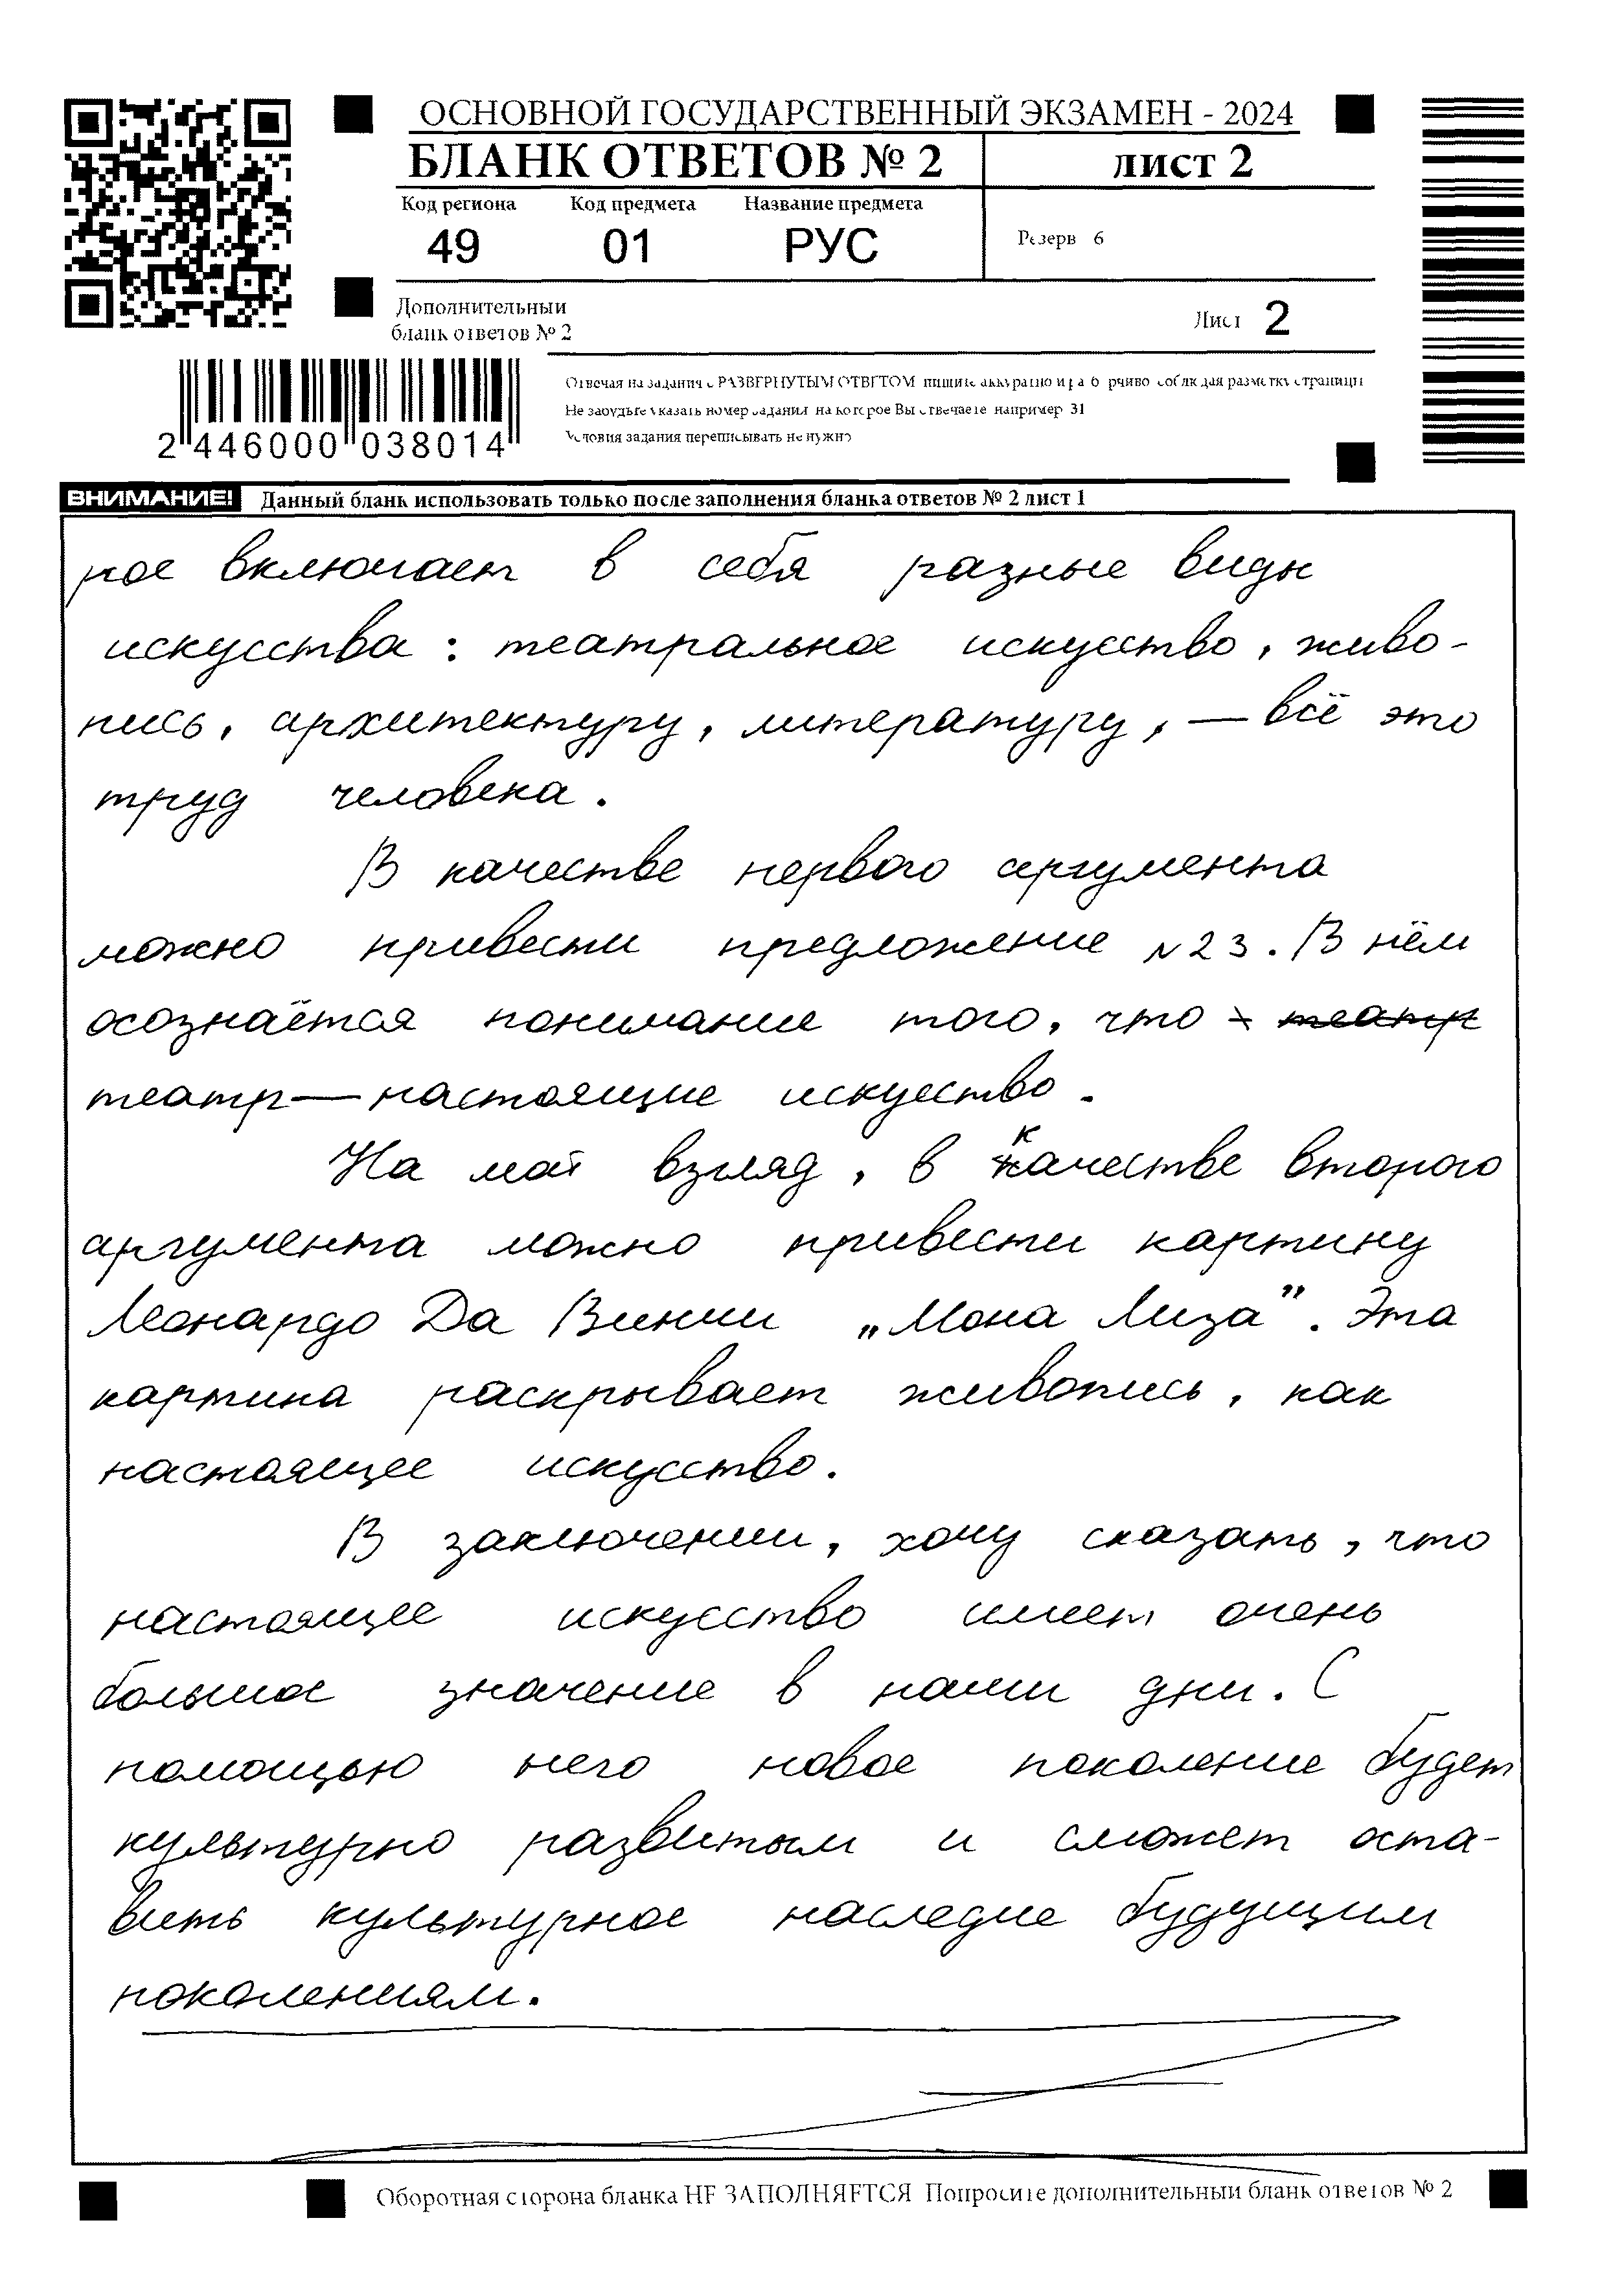 ОСНОВНОЙ ГОСУДАРСТВЕННЫЙ ЭКЗАМЕН - 2024
БЛАНК ОТВЕТОВ № 2 лист 2
Код региона Код предмета Название предмета
49 01 РУС
Резерв 6
Дополнительный
бланк ответов № 2
Лист 2
Отвечая на задания с РАЗВЕРНУТЫМ ОТВЕТОМ пишите аккуратно и разборчиво соблюдая разметку страницы
Не забудьте указать номер задания на которое Вы отвечаете например 31
Условия задания переписывать не нужно
2 446000 038014
ВНИМАНИЕ! Данный бланк использовать только после заполнения бланка ответов № 2 лист 1
рое включает в себя разные виды
искусства: театральное искусство, живо-
пись, архитектуру, литературу, — всё это
труд человека.
В качестве первого аргумента
можно привести предложение №23. В нём
осознаётся понимание того, что театр
театр — настоящие искусство.
На мой взгляд, в качестве второго
аргумента можно привести картину
Леонардо Да Винчи „Мона Лиза”. Эта
картина раскрывает живопись, как
настоящее искусство.
В заключении, хочу сказать, что
настоящее искусство имеет очень
большое значение в наши дни. С
помощью него новое поколение будет
культурно развитым и сможет оста-
вить культурное наследие будущим
поколениям.
Оборотная сторона бланка НЕ ЗАПОЛНЯЕТСЯ Попросите дополнительный бланк ответов № 2